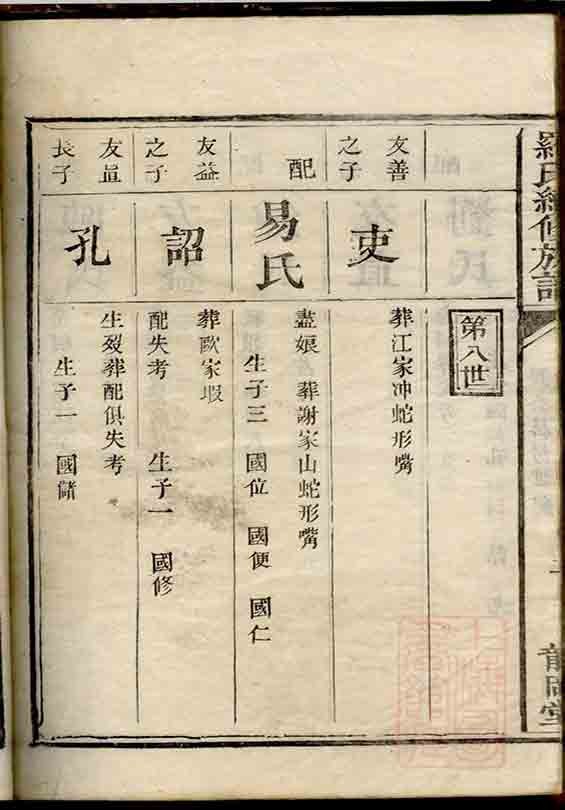 羅氏續修族譜
第八世
友善
之子
吏
葬江家冲蛇形嘴
配
易氏
盡娘 葬謝家山蛇形嘴
生子三 國位 國便 國仁
友益
之子
詔
葬歐家塅
配失考 生子一 國修
友直
長子
孔
生歿葬配俱失考
生子一 國儲